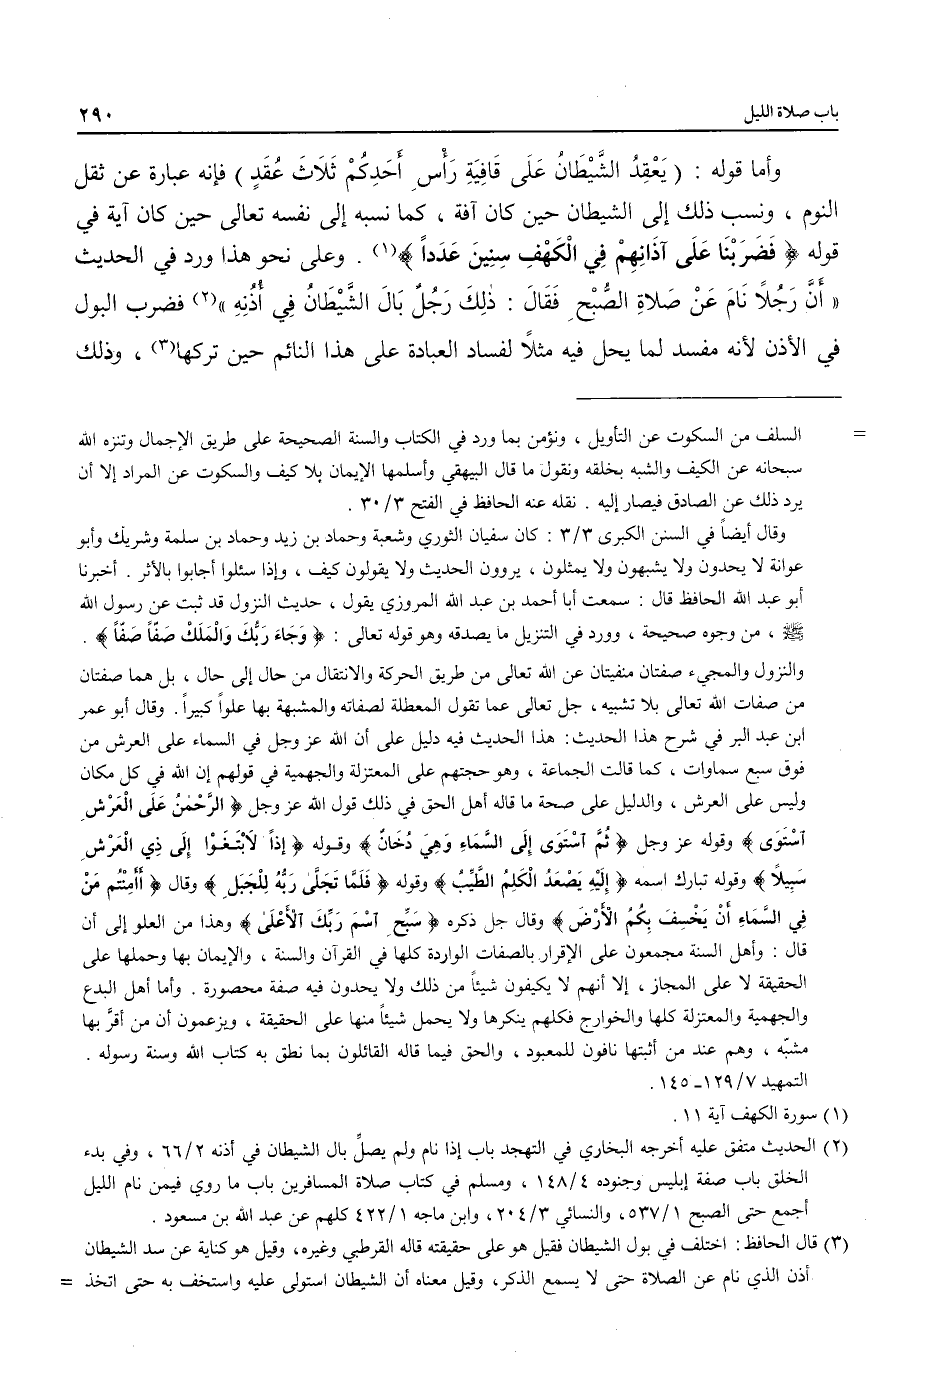 باب صلاة الليل ٢٩٠
وأما قوله : ( يَعْقِدُ الشَّيْطَانُ عَلَى قَافِيَةِ رَأْسِ أَحَدِكُمْ ثَلَاثَ عُقَدٍ ) فإنه عبارة عن ثقل
النوم ، ونسب ذلك إلى الشيطان حين كان آفة ، كما نسبه إلى نفسه تعالى حين كان آية في
قوله ﴿ فَضَرَبْنَا عَلَى آذَانِهِمْ فِي الْكَهْفِ سِنِينَ عَدَداً ﴾(١) . وعلى نحو هذا ورد في الحديث
« أَنَّ رَجُلاً نَامَ عَنْ صَلَاةِ الصُّبْحِ فَقَالَ : ذٰلِكَ رَجُلٌ بَالَ الشَّيْطَانُ فِي أُذُنِهِ »(٢) فضرب البول
في الأذن لأنه مفسد لما يحل فيه مثلاً لفساد العبادة على هذا النائم حين تركها(٣) ، وذلك
= السلف من السكوت عن التأويل ، ونؤمن بما ورد في الكتاب والسنة الصحيحة على طريق الإجمال وتنزه الله
سبحانه عن الكيف والشبه بخلقه ونقول ما قال البيهقي وأسلمها الإيمان بلا كيف والسكوت عن المراد إلا أن
يرد ذلك عن الصادق فيصار إليه . نقله عنه الحافظ في الفتح ٣٠/٣ .
وقال أيضاً في السنن الكبرى ٣/٣ : كان سفيان الثوري وشعبة وحماد بن زيد وحماد بن سلمة وشريك وأبو
عوانة لا يحدون ولا يشبهون ولا يمثلون ، يروون الحديث ولا يقولون كيف ، وإذا سئلوا أجابوا بالأثر . أخبرنا
أبو عبد الله الحافظ قال : سمعت أبا أحمد بن عبد الله المروزي يقول ، حديث النزول قد ثبت عن رسول الله
ﷺ ، من وجوه صحيحة ، وورد في التنزيل ما يصدقه وهو قوله تعالى : ﴿ وَجَاءَ رَبُّكَ وَالْمَلَكُ صَفّاً صَفّاً ﴾ .
والنزول والمجيء صفتان منفيتان عن الله تعالى من طريق الحركة والانتقال من حال إلى حال ، بل هما صفتان
من صفات الله تعالى بلا تشبيه ، جل تعالى عما تقول المعطلة لصفاته والمشبهة بها علواً كبيراً . وقال أبو عمر
ابن عبد البر في شرح هذا الحديث : هذا الحديث فيه دليل على أن الله عز وجل في السماء على العرش من
فوق سبع سماوات ، كما قالت الجماعة ، وهو حجتهم على المعتزلة والجهمية في قولهم إن الله في كل مكان
وليس على العرش ، والدليل على صحة ما قاله أهل الحق في ذلك قول الله عز وجل ﴿ الرَّحْمٰنُ عَلَى الْعَرْشِ
آسْتَوَى ﴾ وقوله عز وجل ﴿ ثُمَّ آسْتَوَى إِلَى السَّمَاءِ وَهِيَ دُخَانٌ ﴾ وقوله ﴿ إِذاً لَابْتَغَوْا إِلَى ذِي الْعَرْشِ
سَبِيلاً ﴾ وقوله تبارك اسمه ﴿ إِلَيْهِ يَصْعَدُ الْكَلِمُ الطَّيِّبُ ﴾ وقوله ﴿ فَلَمَّا تَجَلَّى رَبُّهُ لِلْجَبَلِ ﴾ وقال ﴿ أَأَمِنْتُم مَنْ
فِي السَّمَاءِ أَنْ يَخْسِفَ بِكُمُ الْأَرْضَ ﴾ وقال جل ذكره ﴿ سَبِّحِ آسْمَ رَبِّكَ الْأَعْلَىٰ ﴾ وهذا من العلو إلى أن
قال : وأهل السنة مجمعون على الإقرار بالصفات الواردة كلها في القرآن والسنة ، والإيمان بها وحملها على
الحقيقة لا على المجاز ، إلا أنهم لا يكيفون شيئاً من ذلك ولا يحدون فيه صفة محصورة . وأما أهل البدع
والجهمية والمعتزلة كلها والخوارج فكلهم ينكرها ولا يحمل شيئاً منها على الحقيقة ، ويزعمون أن من أقرَّ بها
مشبّه ، وهم عند من أثبتها نافون للمعبود ، والحق فيما قاله القائلون بما نطق به كتاب الله وسنة رسوله .
التمهيد ١٢٩/٧ - ١٤٥ .
(١) سورة الكهف آية ١١ .
(٢) الحديث متفق عليه أخرجه البخاري في التهجد باب إذا نام ولم يصلِّ بال الشيطان في أذنه ٦٦/٢ ، وفي بدء
الخلق باب صفة إبليس وجنوده ١٤٨/٤ ، ومسلم في كتاب صلاة المسافرين باب ما روي فيمن نام الليل
أجمع حتى الصبح ٥٣٧/١ ، والنسائي ٢٠٤/٣ ، وابن ماجه ٤٢٢/١ كلهم عن عبد الله بن مسعود .
(٣) قال الحافظ : اختلف في بول الشيطان فقيل هو على حقيقته قاله القرطبي وغيره، وقيل هو كناية عن سد الشيطان
أذن الذي نام عن الصلاة حتى لا يسمع الذكر، وقيل معناه أن الشيطان استولى عليه واستخف به حتى اتخذ =